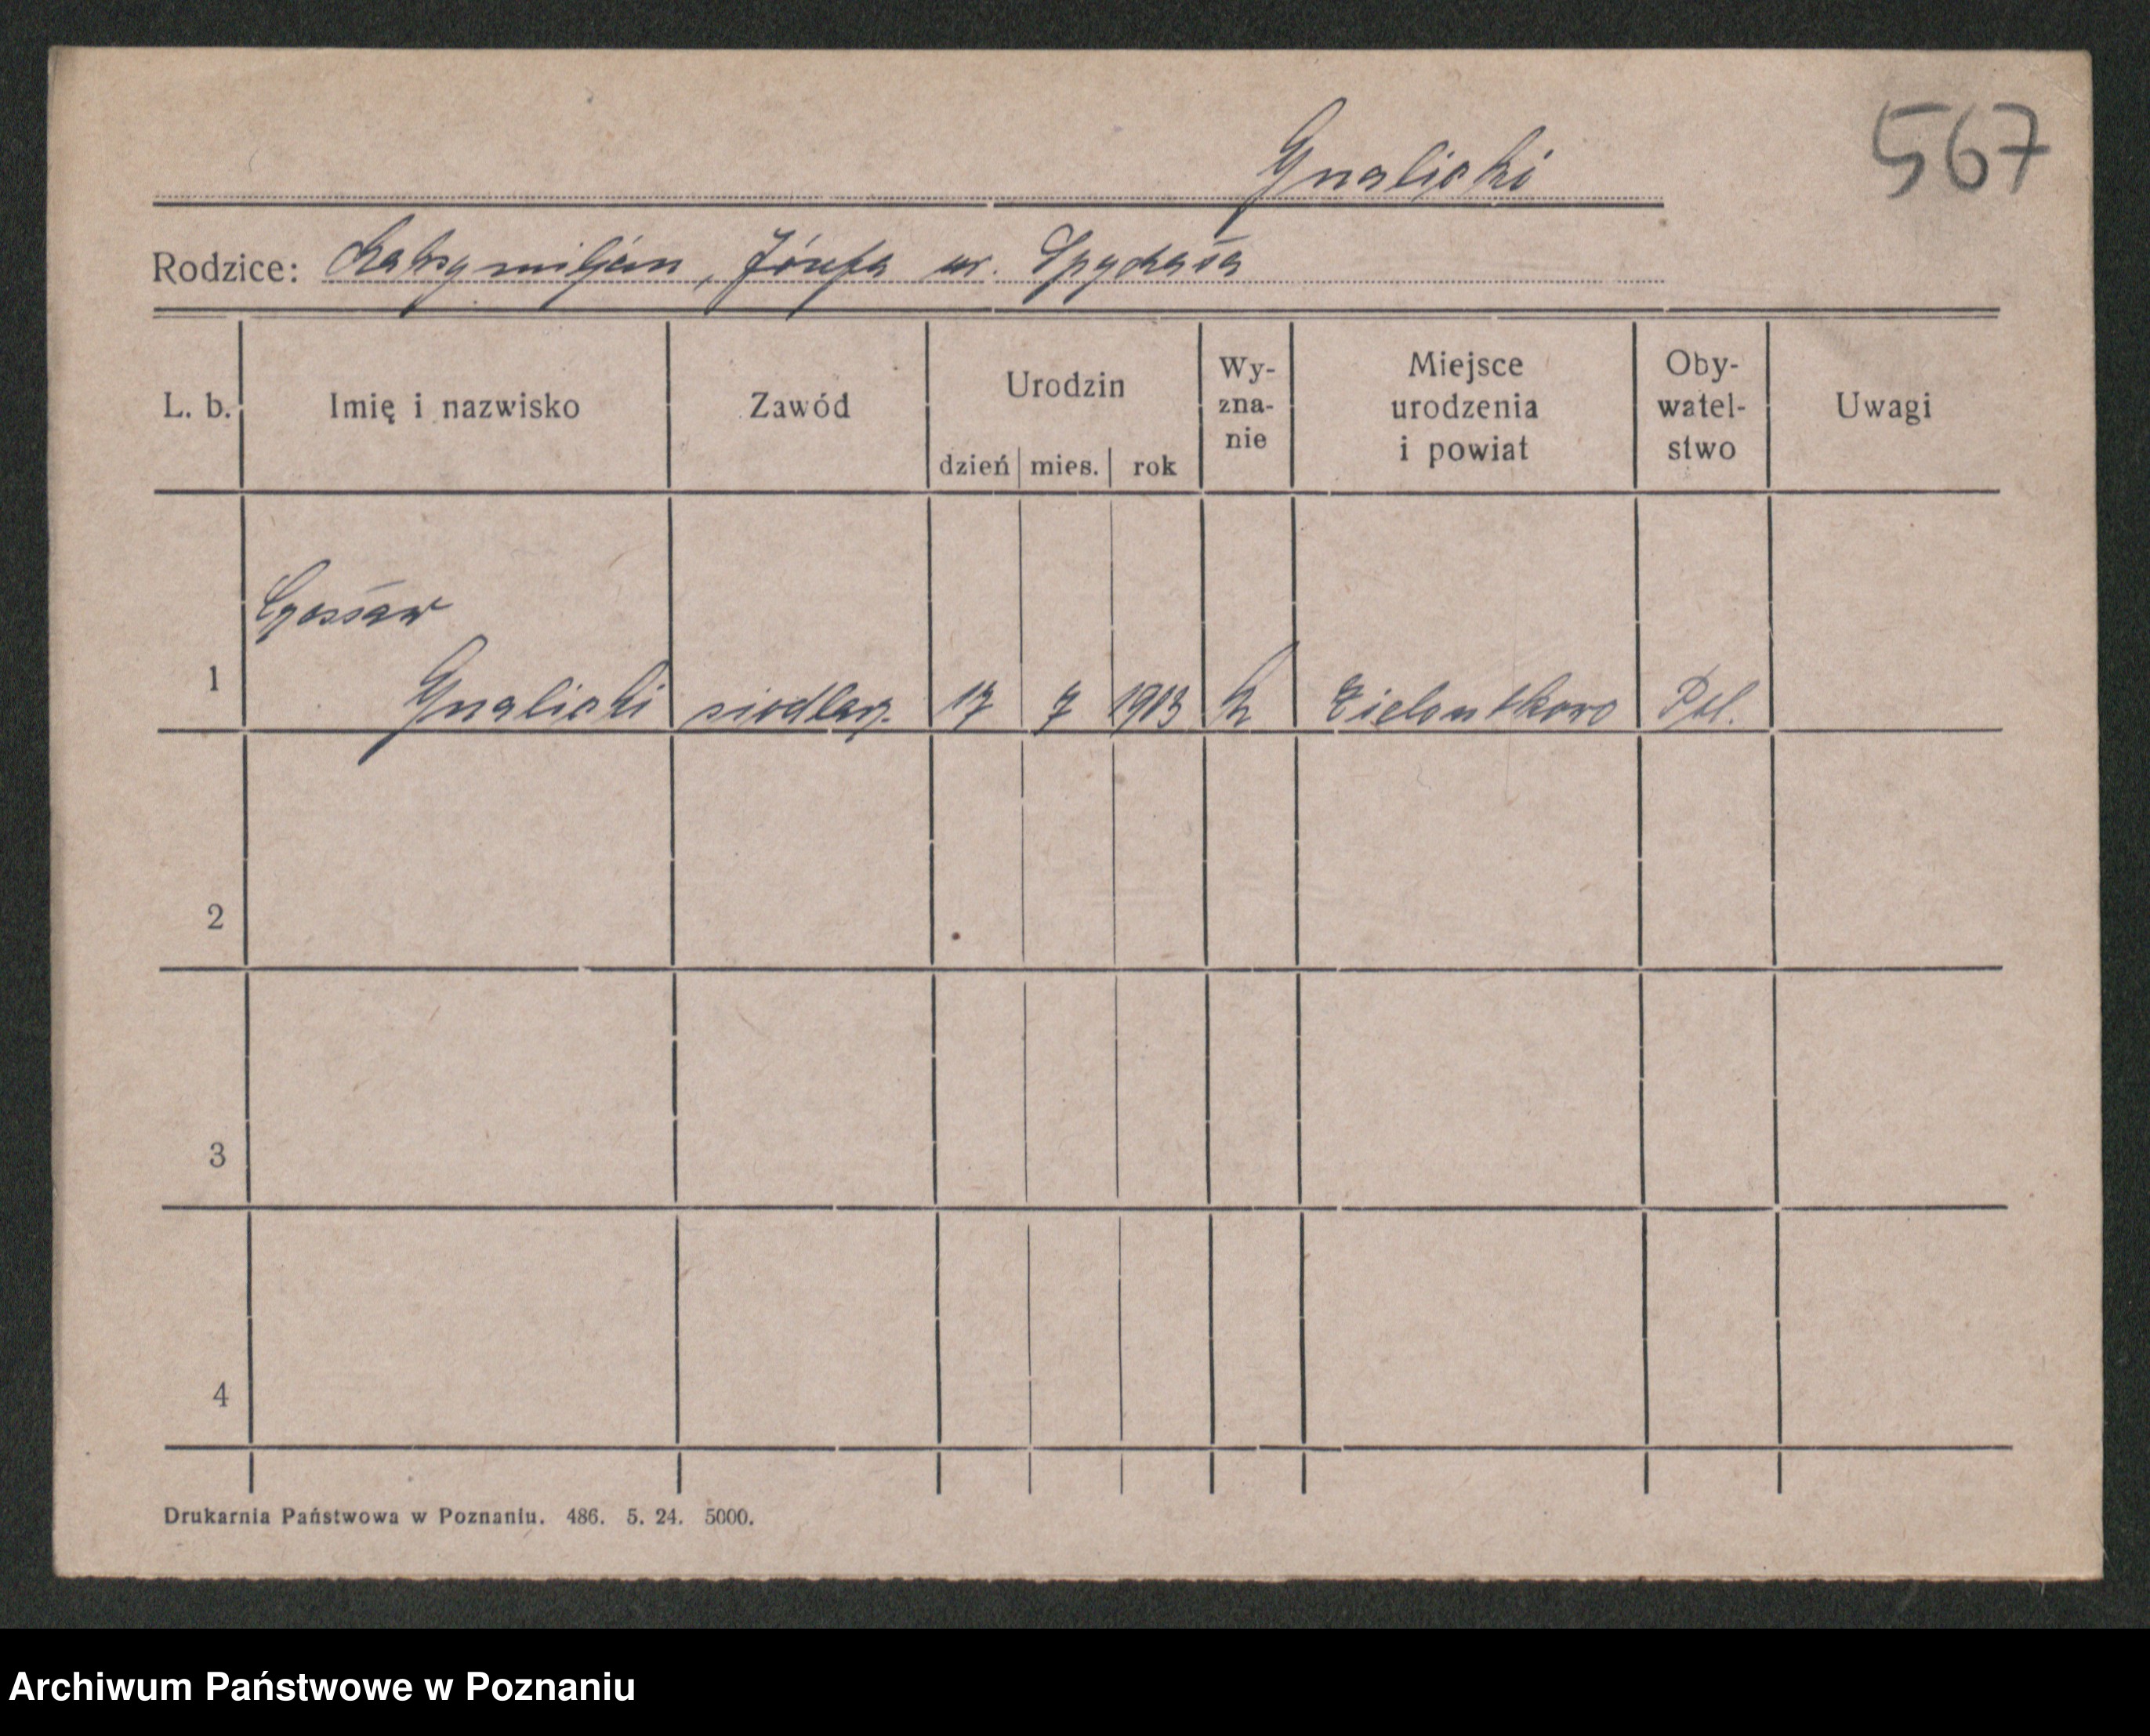 567
Gnalicki
Rodzice: Maksymiljan, Józefa ur. Spychała
L. b. Imię i nazwisko Zawód Urodzin dzień mies. rok Wy-zna-nie Miejsce urodzenia i powiat Oby-watel-stwo Uwagi
Czesław
1 Gnalicki siodlarz. 17 7 1913 k Zielontkowo Pol.
2
3
4
Drukarnia Państwowa w Poznaniu. 486. 5. 24. 5000.
Archiwum Państwowe w Poznaniu